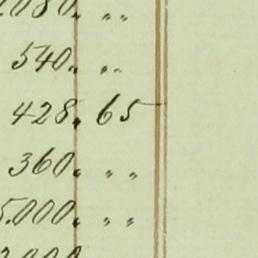 2080. „ „
540. „ „
428. 65
360. „ „
5.000. „ „